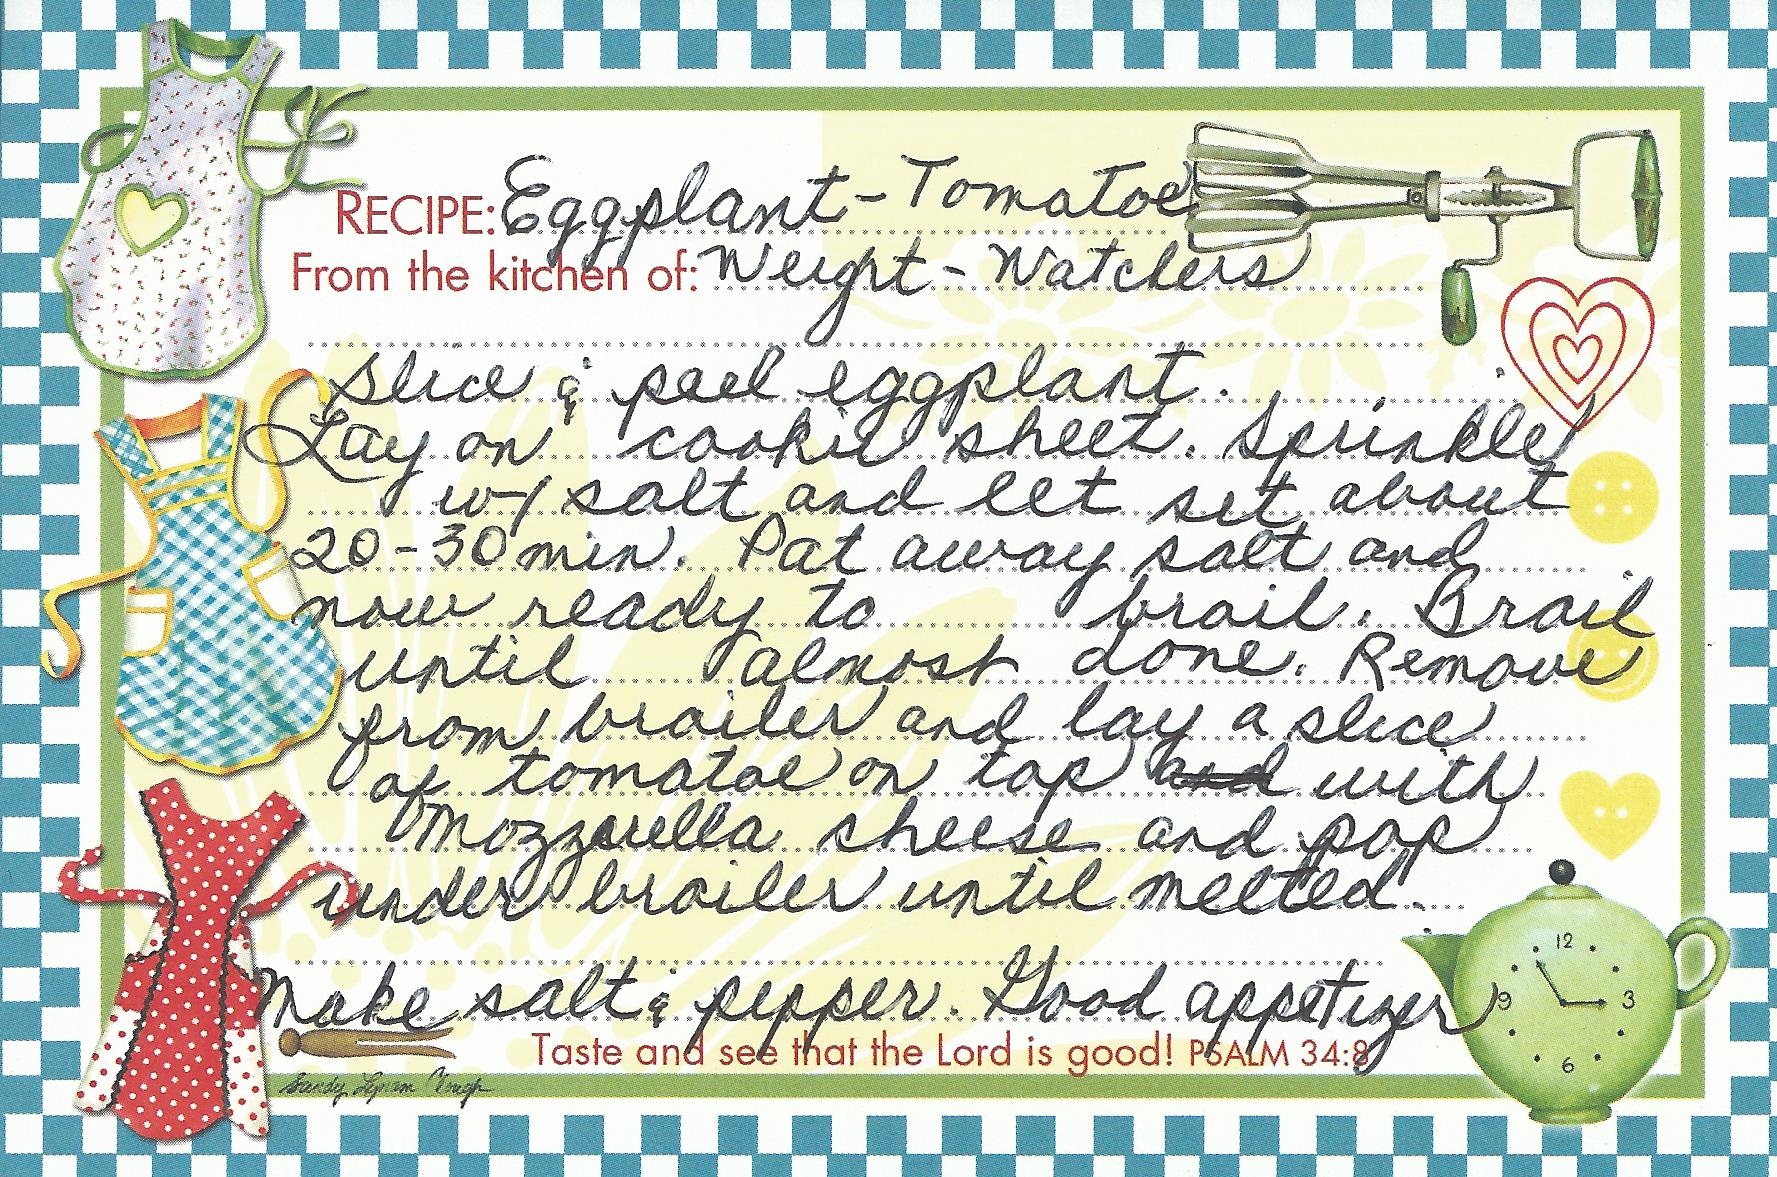 RECIPE: Eggplant-Tomatoe
From the kitchen of: Weight-Watchers
Slice & peel eggplant.
Lay on cookie sheet. Sprinkle
w/ salt and let set about
20-30 min. Pat away salt and
now ready to broil. Broil
until almost done. Remove
from broiler and lay a slice
of tomatoe on top and with
Mozzarella cheese and pop
under broiler until melted.
Make salt & pepper. Good appetizer
Taste and see that the Lord is good! PSALM 34:8
Sandy Lynam
12
9 3
6